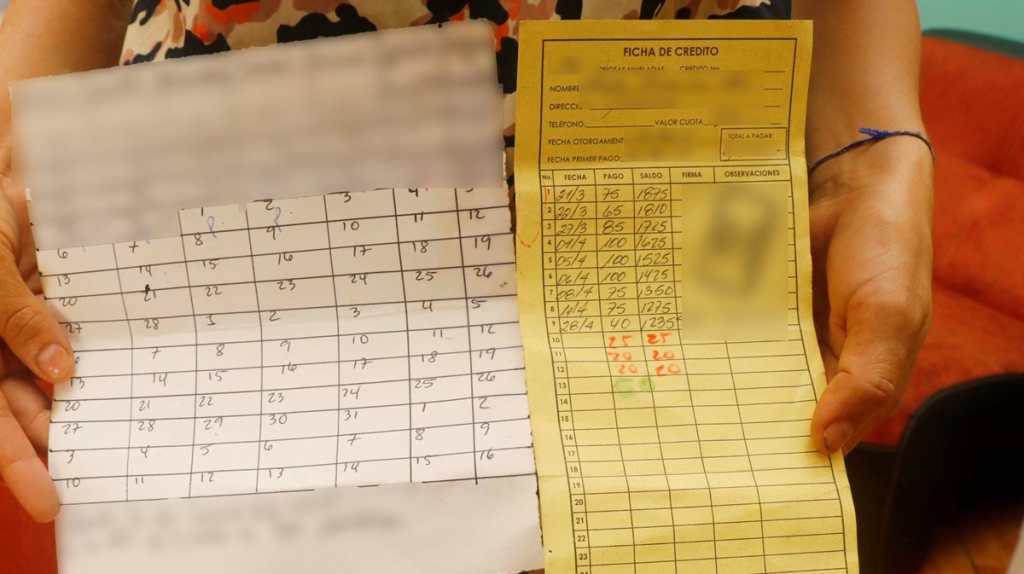 1 2 3 4 5
6 7 8 9 10 11 12
13 14 15 16 17 18 19
20 21 22 23 24 25 26
27 28 1 2 3 4 5
7 8 9 10 11 12
13 14 15 16 17 18 19
20 21 22 23 24 25 26
27 28 29 30 31 1 2
3 4 5 6 7 8 9
10 11 12 13 14 15 16
FICHA DE CREDITO
CREDITO No.
NOMBRE
DIRECCI
TELÉFONO VALOR CUOTA
FECHA OTORGAMIENT
TOTAL A PAGAR:
FECHA PRIMER PAGO:
No. FECHA PAGO SALDO FIRMA OBSERVACIONES
1 21/3 75 1875
2 22/3 65 1810
3 27/3 85 1725
4 04/4 100 1625
5 05/4 100 1525
6 06/4 100 1425
7 08/4 75 1350
8 16/4 75 1275
9 28/4 40 1235
10 25 25
11 20 20
12 20 20
13
14
15
16
17
18
19
20
21
22
23